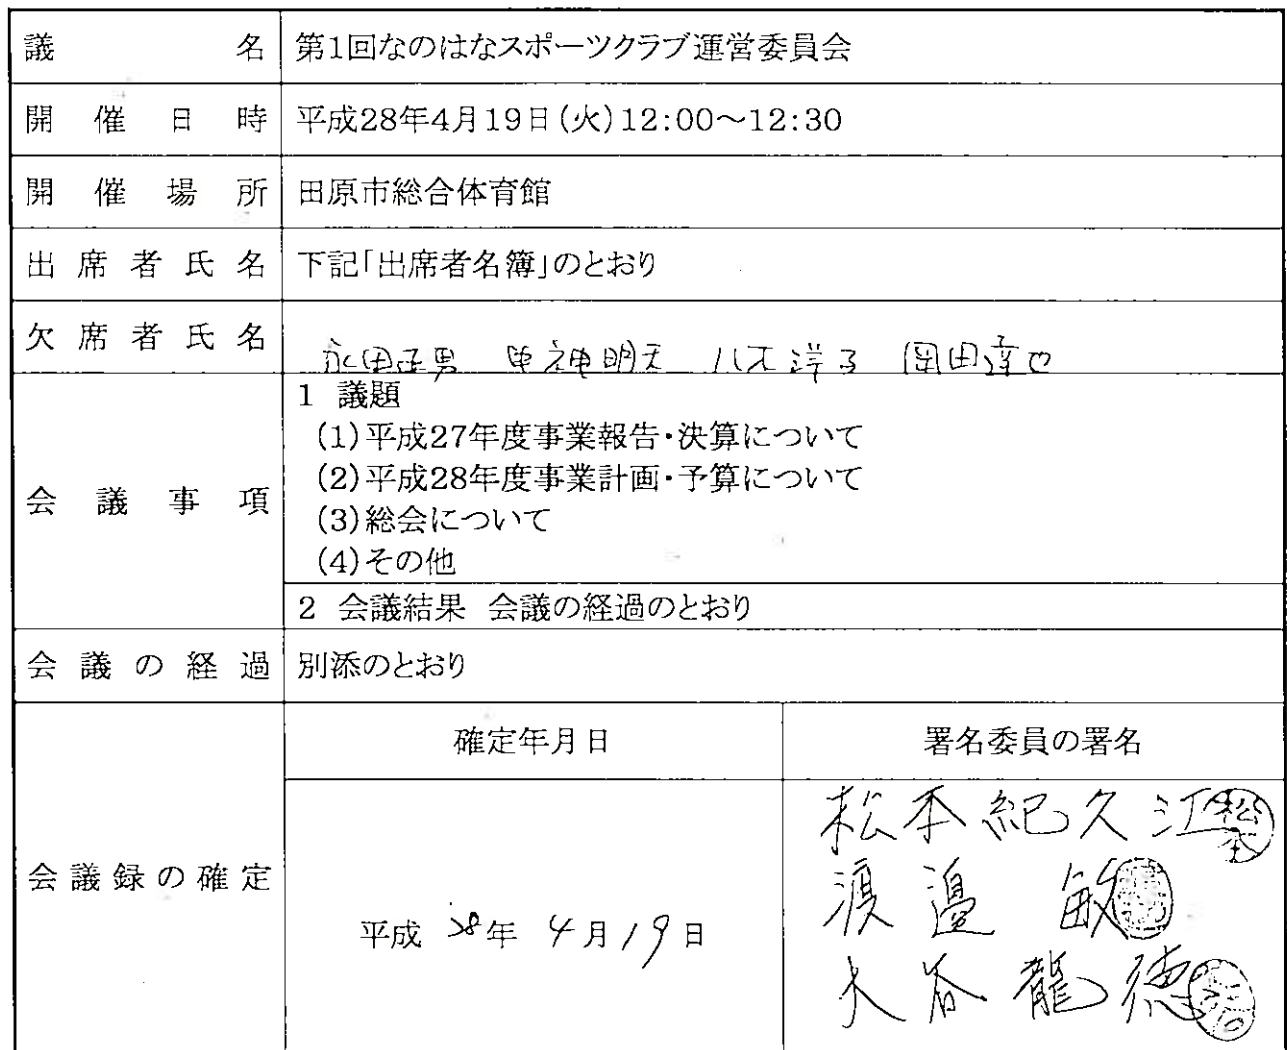 議名 第1回なのはなスポーツクラブ運営委員会
開催日時 平成28年4月19日(火)12:00～12:30
開催場所 田原市総合体育館
出席者氏名 下記「出席者名簿」のとおり
欠席者氏名
永田正男 八木洋子 岡田達也
1 議題
(1)平成27年度事業報告・決算について
(2)平成28年度事業計画・予算について
会議事項
(3)総会について
(4)その他
2 会議結果 会議の経過のとおり
会議の経過 別添のとおり
確定年月日 署名委員の署名
松本紀久江 松本
会議録の確定
渡邉 敏
平成 28年 4月19日
大谷龍徳